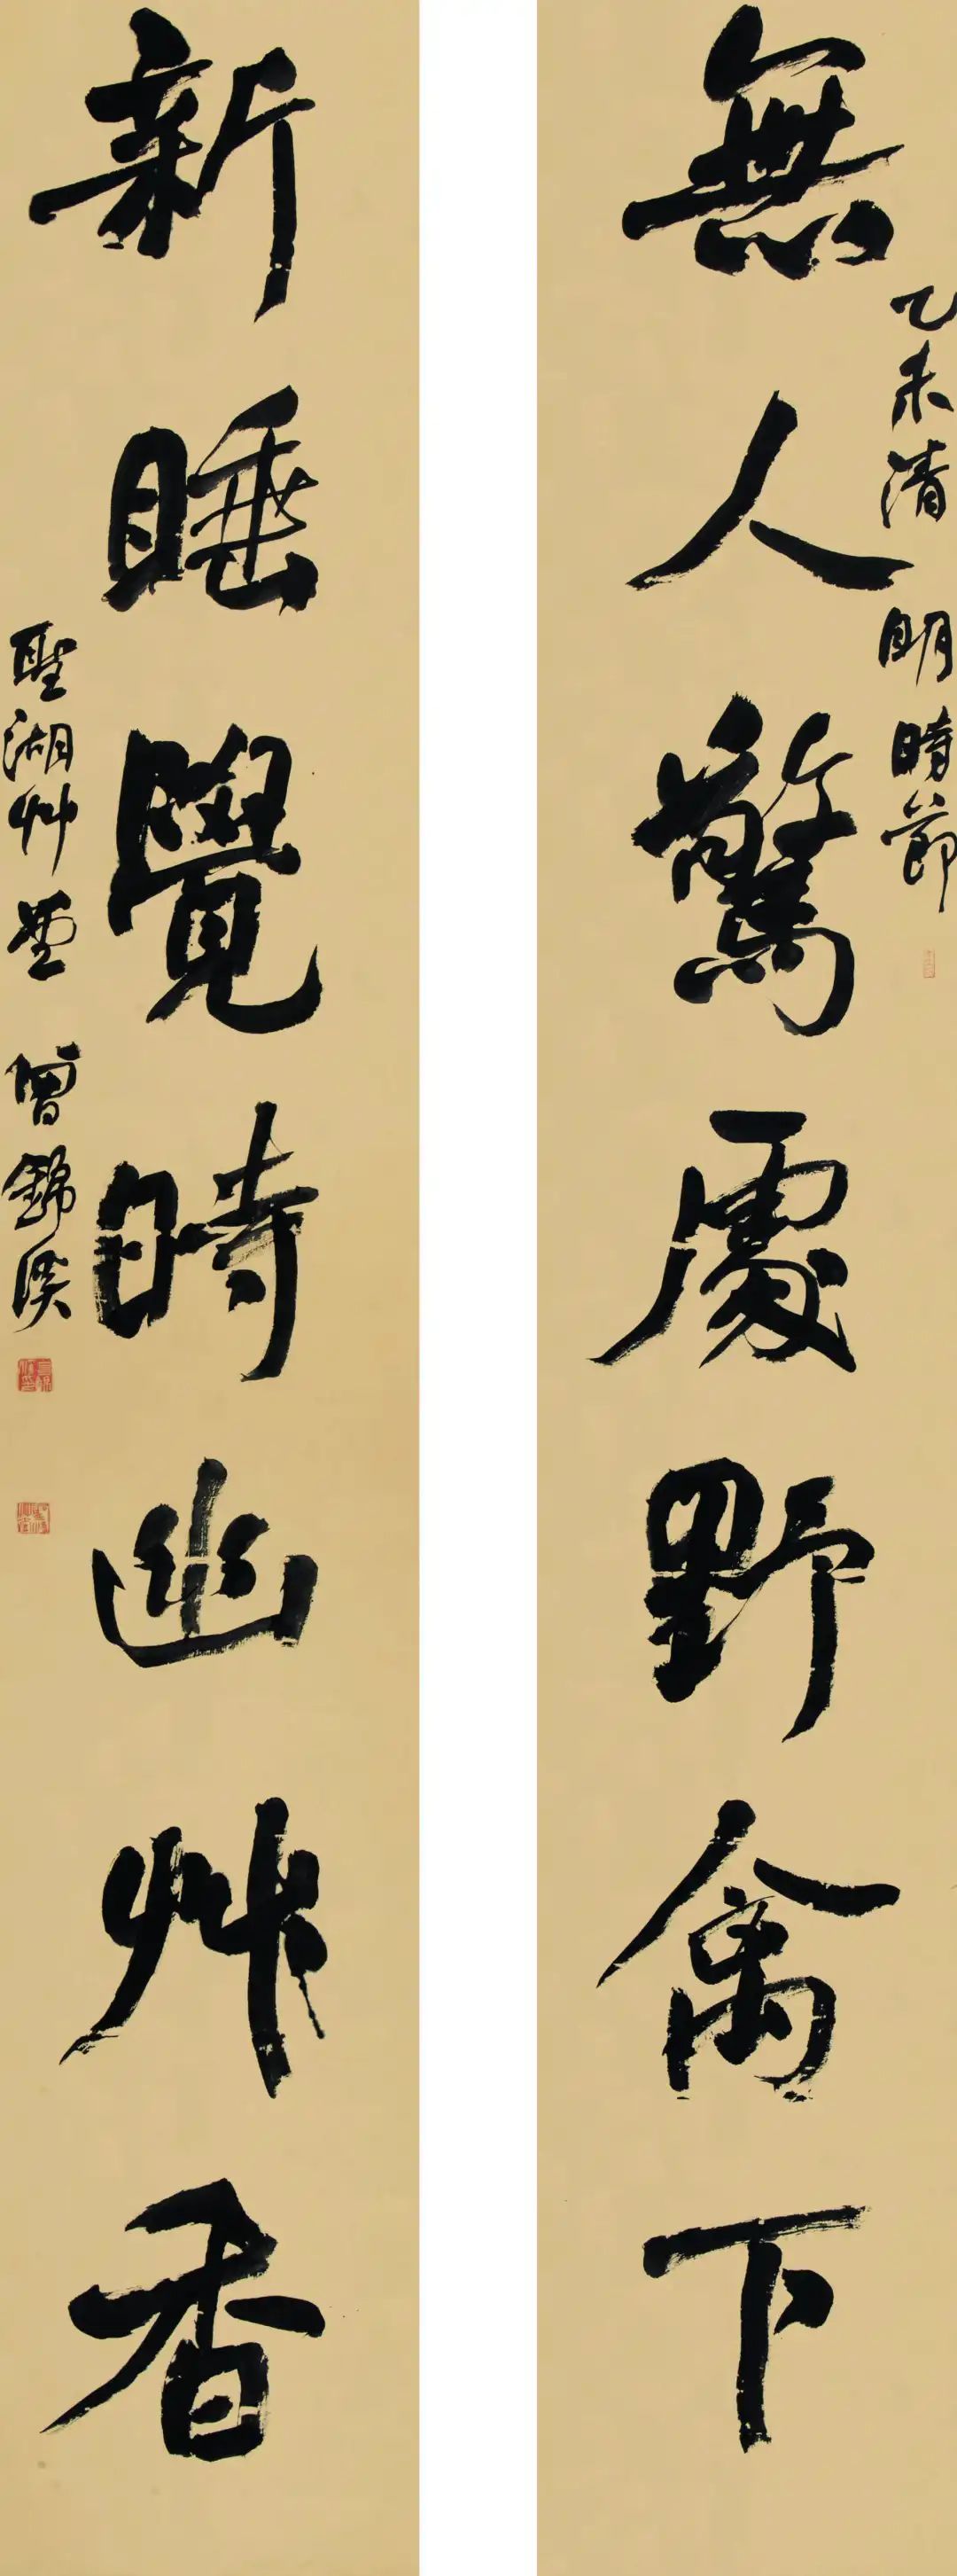 無人驚處野禽下
乙未清明時節
新睡覺時幽艸香
聖湖艸堂 曾錦溪